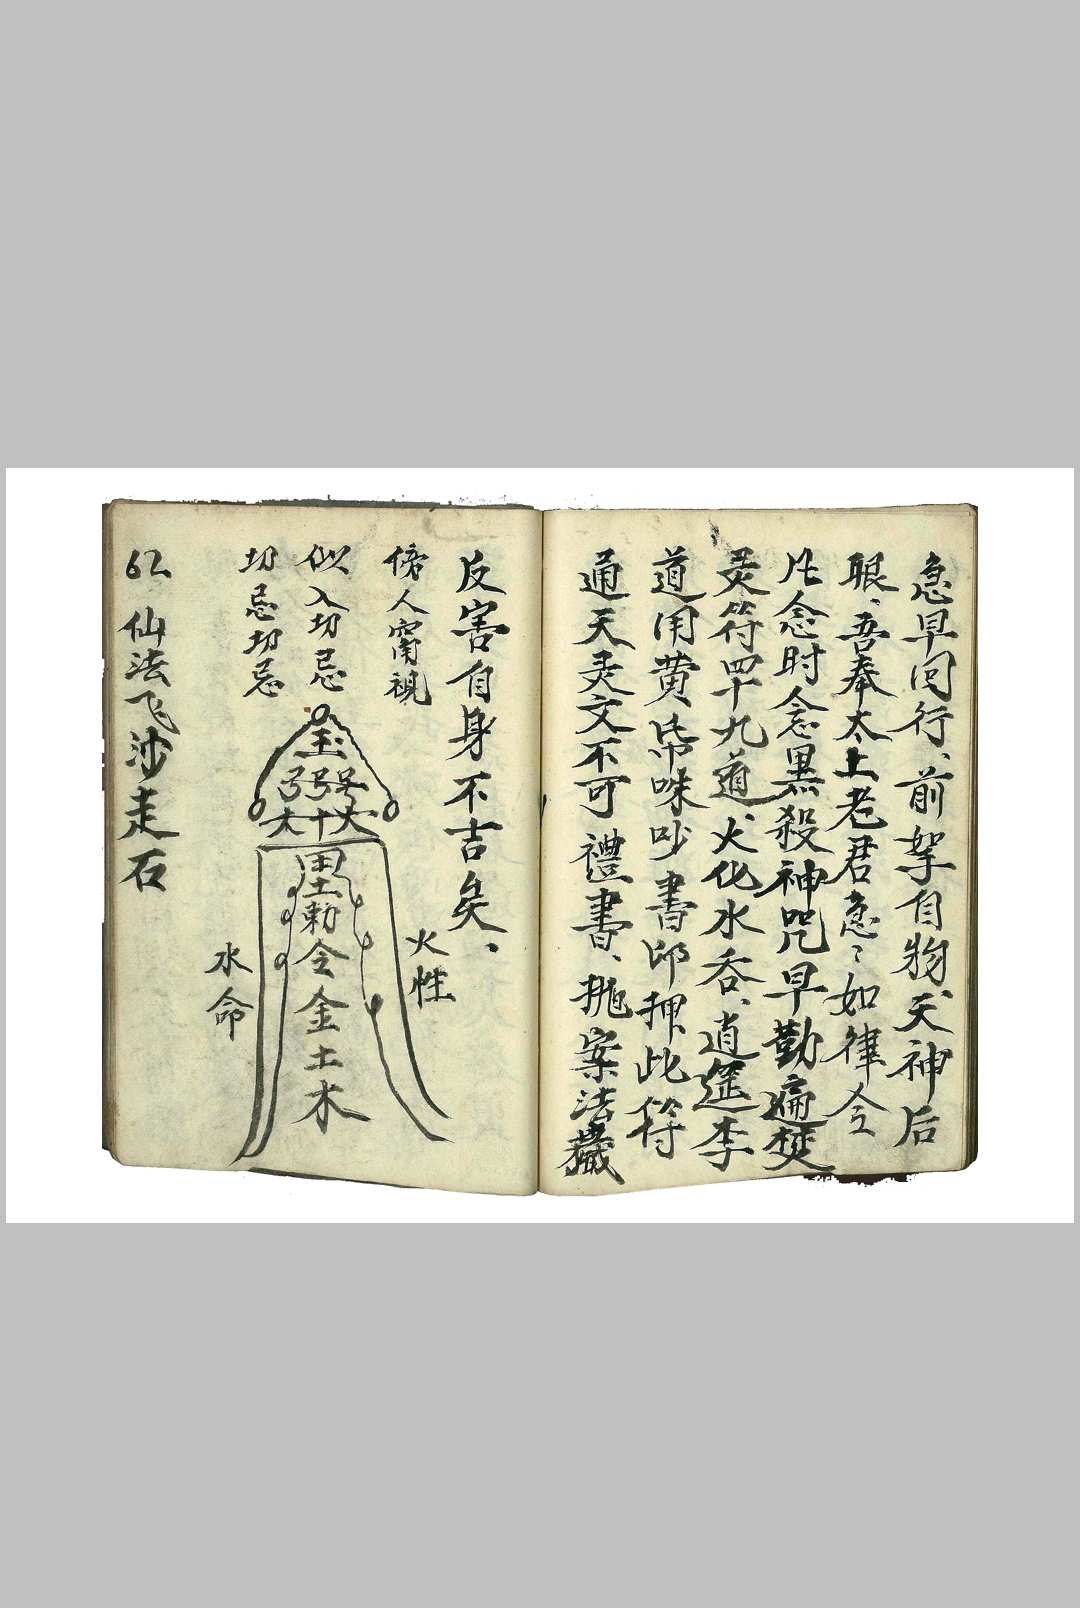 急早回行、前拏自物、天神后
眼、吾奉太上老君急〻如律令
此念时念黑殺神咒早勤遍焚
灵符四十九道、火化水吞、逍遥李
道用黄帋味吵書印押、此符
通天灵文不可禮書、抛案法
反害自身不吉矣、
傍人窃視
似入切忌
切忌切忌
玉
弓弓
大十火
黑勅令金土木
火性
水命
62 仙法飞沙走石